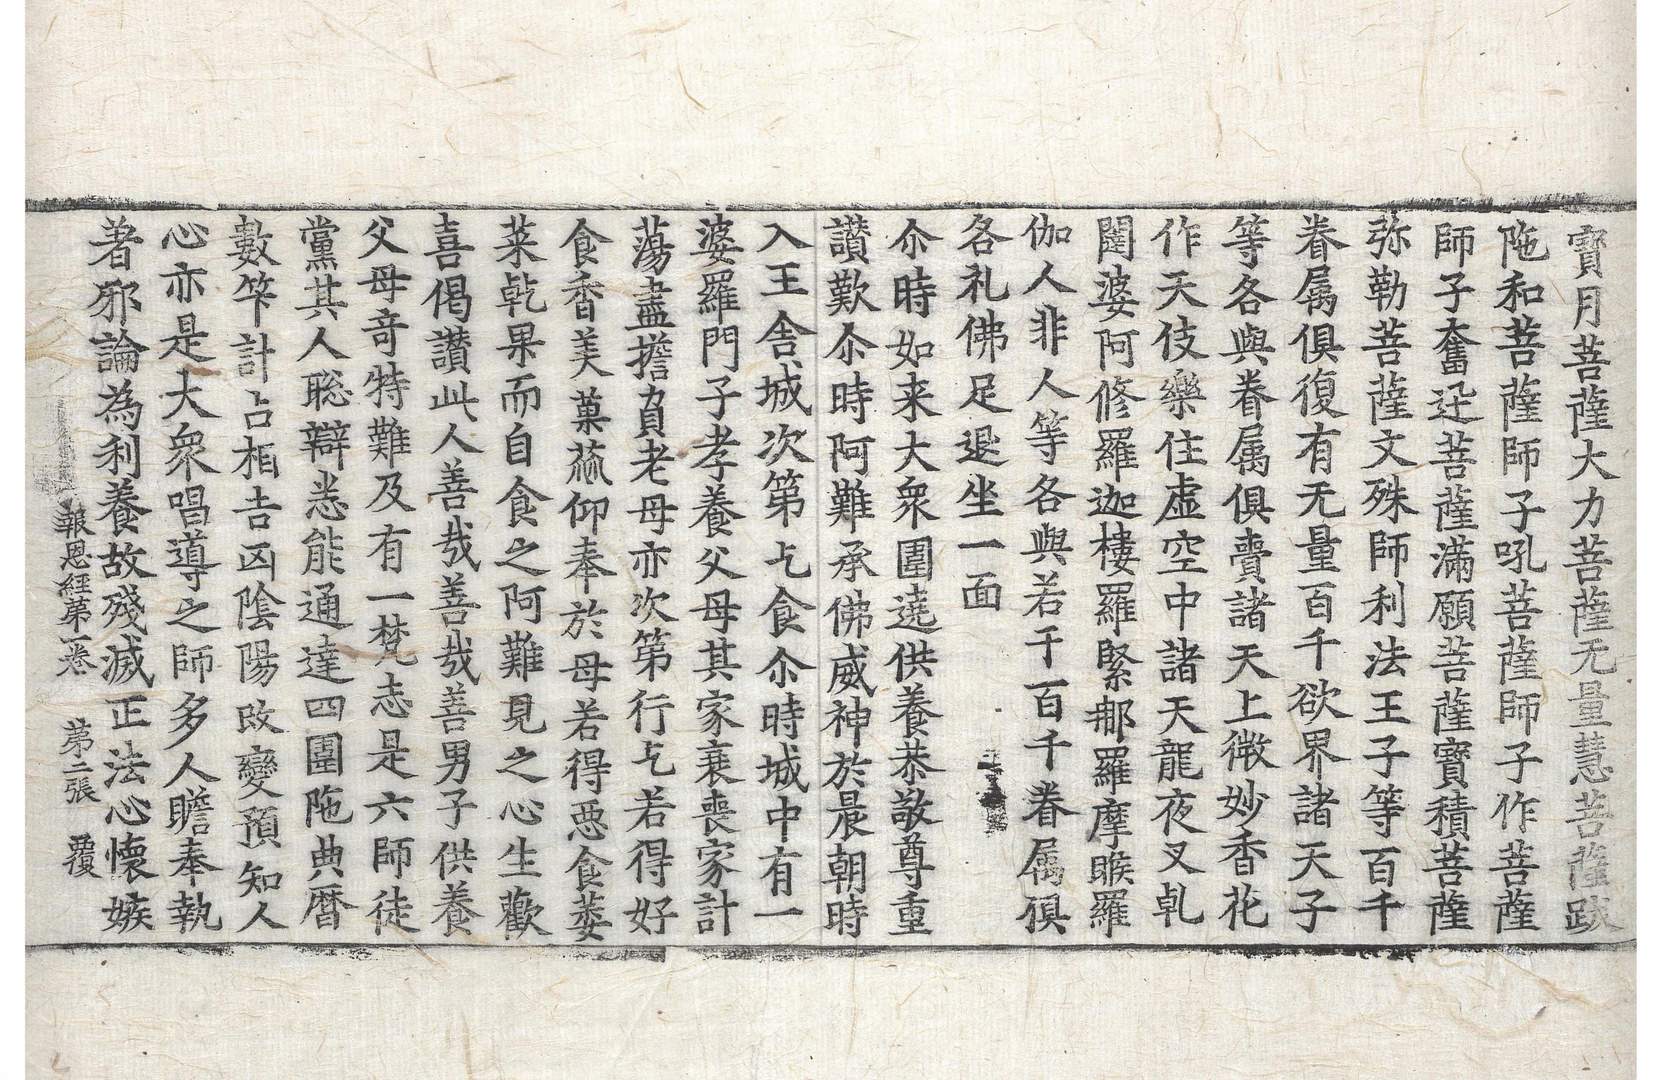 寶月菩薩大力菩薩无量慧菩薩跋
陁和菩薩師子吼菩薩師子作菩薩
師子奮迅菩薩滿願菩薩寶積菩薩
弥勒菩薩文殊師利法王子等百千
眷属俱復有无量百千欲界諸天子
等各與眷属俱賷諸天上微妙香花
作天伎樂住虛空中諸天龍夜叉乹
闥婆阿修羅迦樓羅緊郍羅摩睺羅
伽人非人等各與若干百千眷属俱
各礼佛足退坐一面
尒時如来大衆圍遶供養恭敬尊重
讃歎尒時阿難承佛威神於晨朝時
入王舍城次第乞食尒時城中有一
婆羅門子孝養父母其家衰喪家計
蕩盡擔負老母亦次第行乞若得好
食香美菓蓏仰奉於母若得惡食萎
菜乾果而自食之阿難見之心生歡
喜偈讃此人善哉善哉善男子供養
父母奇特難及有一梵志是六師徒
黨其人聡辯悉能通達四圍陁典曆
數筭計占相吉凶陰陽改變預知人
心亦是大衆唱導之師多人瞻奉執
著邪論為利養故殘滅正法心懷嫉
報恩經第一卷 第二張 覆